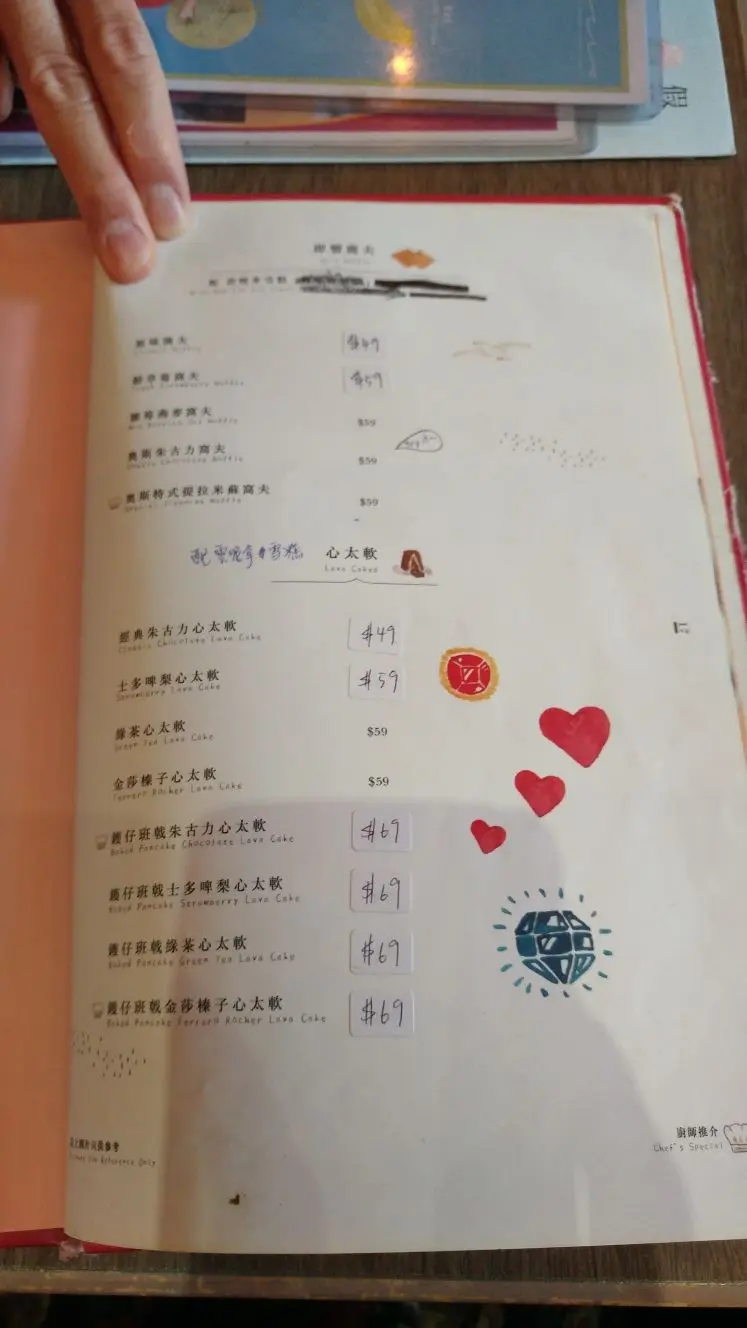 假
即製窩夫
窩夫
$49
窩夫
$59
窩夫
$59
奧斯朱古力窩夫
$59
奧斯特式提拉米蘇窩夫
$59
配 雪糕
心太軟
Lava Cakes
經典朱古力心太軟
$49
Classic Chocolate Lava Cake
士多啤梨心太軟
$59
Strawberry Lava Cake
綠茶心太軟
$59
Green Tea Lava Cake
金莎榛子心太軟
$59
Ferrero Rocher Lava Cake
鑊仔班戟朱古力心太軟
$69
Baked Pancake Chocolate Lava Cake
鑊仔班戟士多啤梨心太軟
$69
Baked Pancake Strawberry Lava Cake
鑊仔班戟綠茶心太軟
$69
Baked Pancake Green Tea Lava Cake
鑊仔班戟金莎榛子心太軟
$69
Baked Pancake Ferrero Rocher Lava Cake
只供參考
For Reference Only
廚師推介
Chef's Special